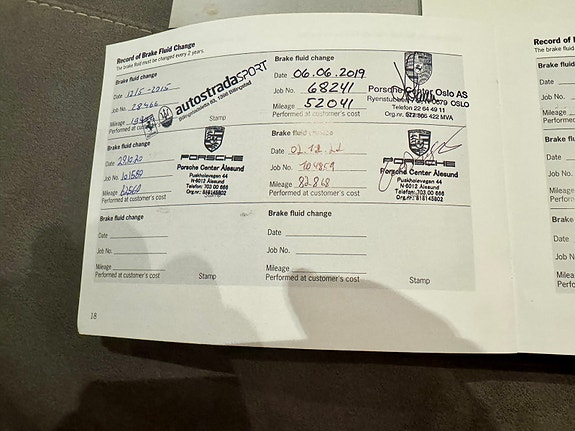 Record of Brake Fluid Change
The brake fluid must be changed every 2 years.
Brake fluid change
Date 12/5-2015
Job No. 28466
Mileage
Performed at customer's cost
Stamp
autostradaSPORT
Billingstadsletta 83, 1396 Billingstad
Brake fluid change
Date 06.06.2019
Job No. 68241
Mileage 52041
Performed at customer's cost
Porsche Center Oslo AS
0679 OSLO
Telefon 22 64 49 11
Org.nr. 922 866 422 MVA
Brake fluid change
Date
Job No.
Mileage
Performed at customer's cost
PORSCHE
Porsche Center Ålesund
Puskholevegen 44
N-6012 Ålesund
Telefon: 703 00 666
Org.nr.: 818145802
Stamp
Brake fluid change
Date
Job No. 104859
Mileage 82868
Performed at customer's cost
PORSCHE
Porsche Center Ålesund
Puskholevegen 44
N-6012 Ålesund
Telefon: 703 00 666
Org.nr.: 818145802
Brake fluid change
Date
Job No.
Mileage
Performed at customer's cost
Stamp
Brake fluid change
Date
Job No.
Mileage
Performed at customer's cost
Stamp
18
Record of
The brake flu
Brake fluid
Date
Job No.
Mileage
Performed
Brake fluid
Date
Job No.
Mileage
Performed
Brake fl
Date
Job No.
Mileage
Perform